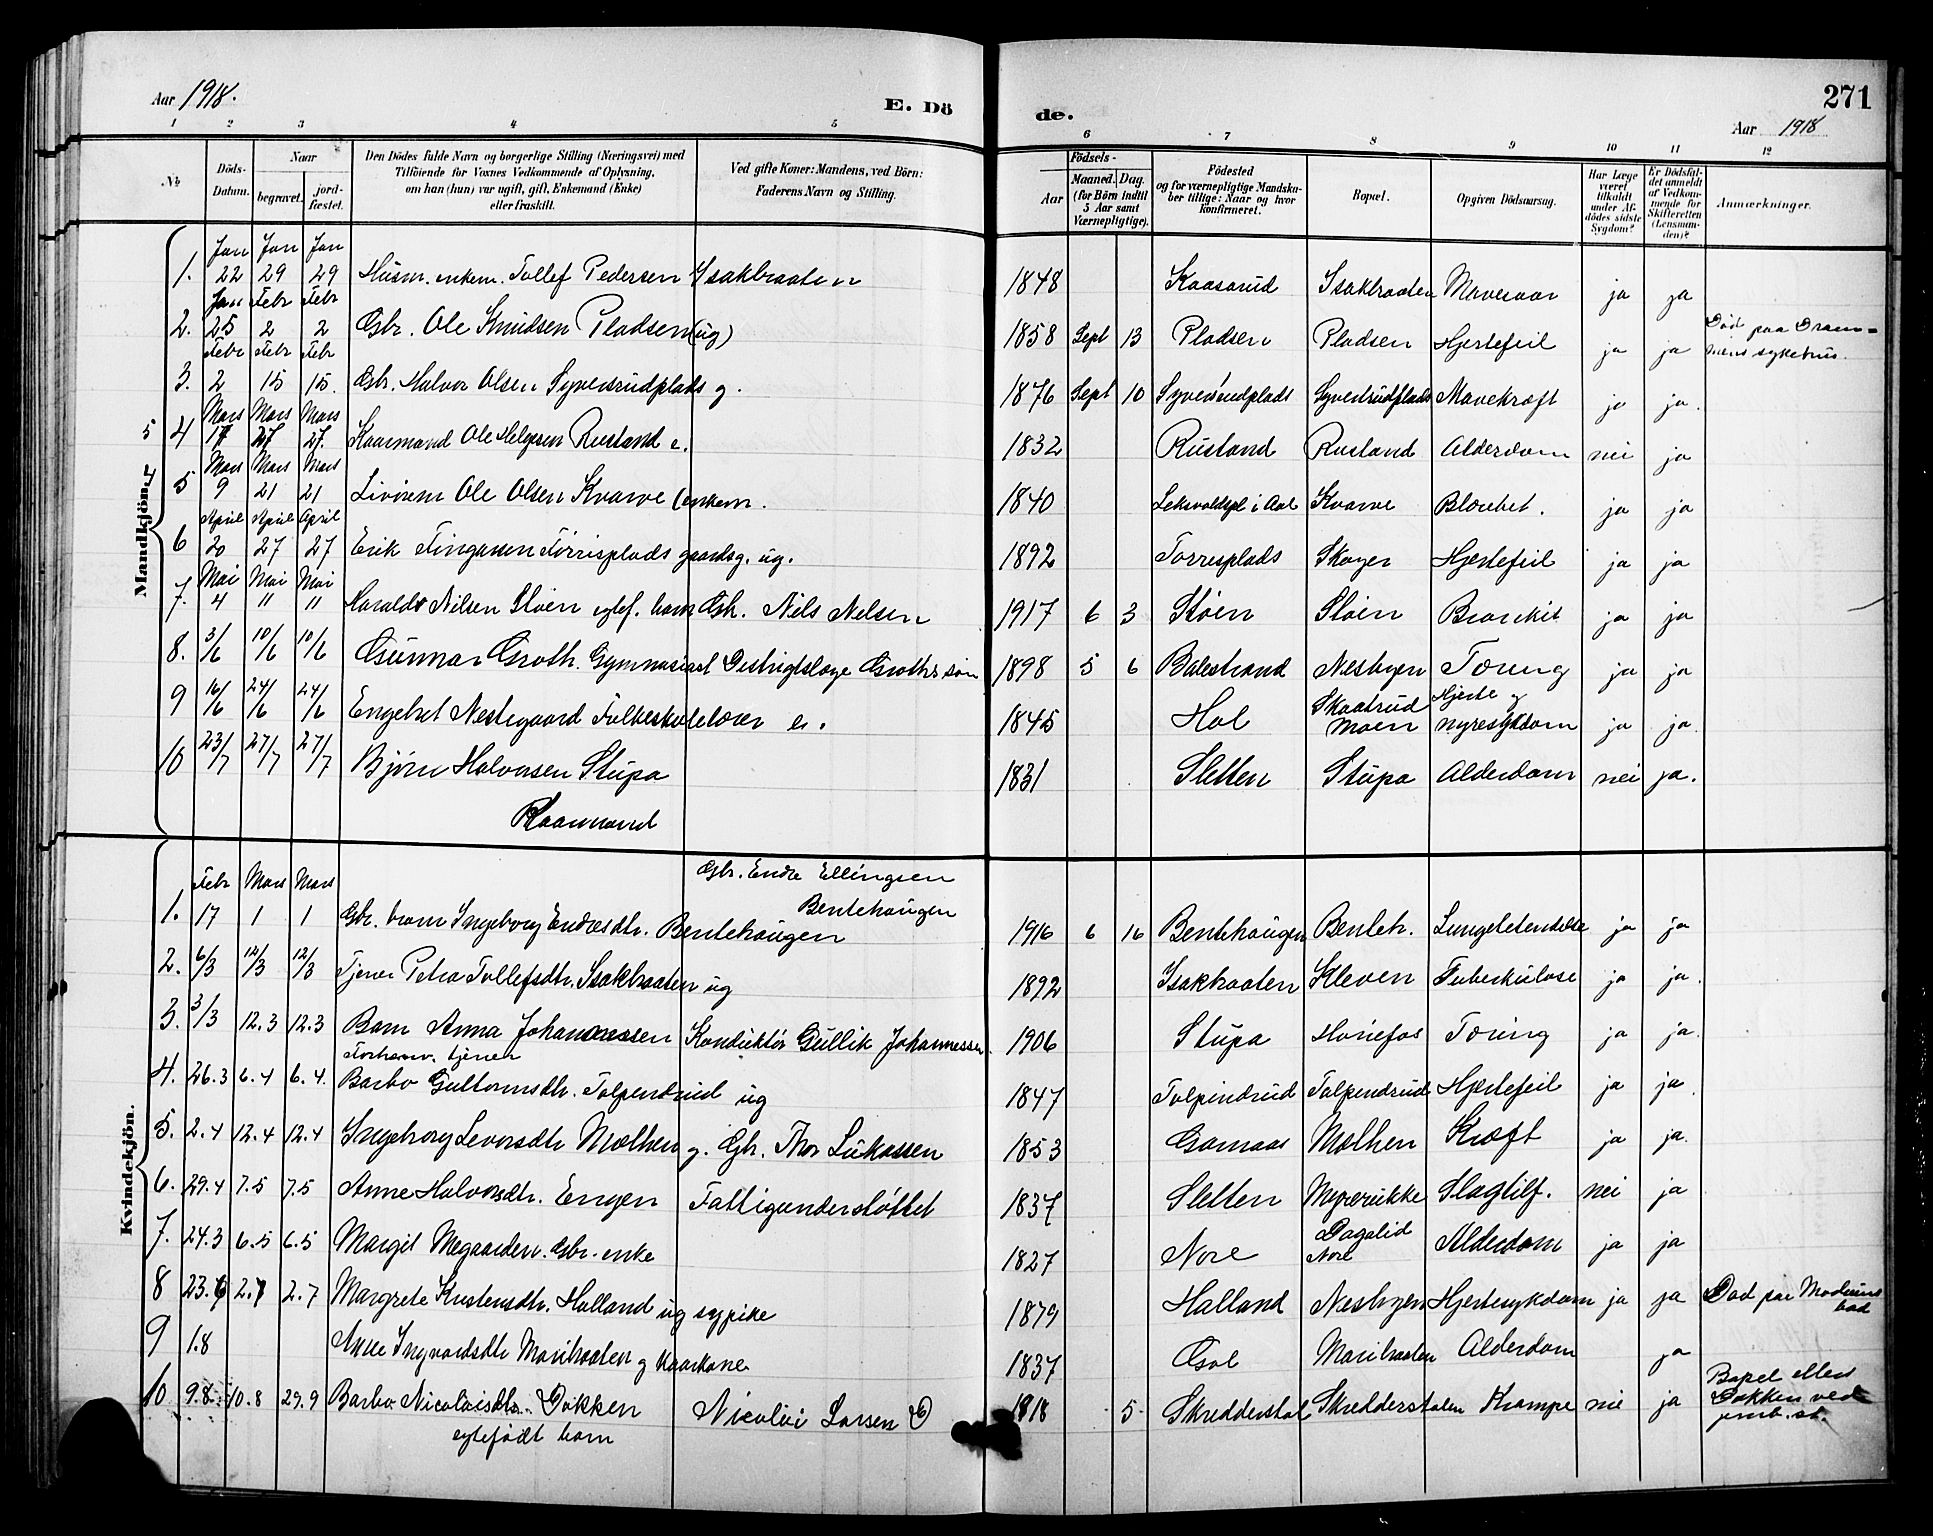 Aar 1918.
E. Dö
de.
271
Aar 1918
1 2 3 4 5 6 7 8 9 10 11 12
No
Döds-Datum.
Naar
begravet.
jord-fæstet.
Den Dödes fulde Navn og borgerlige Stilling (Næringsvei) med
Tilföiende for Voxnes Vedkommende af Oplysning,
om han (hun) var ugift, gift, Enkemand (Enke)
eller fraskilt.
Ved gifte Koner: Mandens, ved Börn:
Faderens Navn og Stilling.
Födsels-
Aar
Maaned. Dag.
(for Börn indtil
5 Aar samt
Værnepligtige).
Födested
og for værnepligtige Mandska-
ber tillige: Naar og hvor
konfirmeret.
Bopæl.
Opgiven Dödsaarsag.
Har Læge
været
tilkaldt
under Af-
dödes sidste
Sygdom?
Er Dödsfal-
det anmeldt
af Vedkom-
mende for
Skifteretten
(Lensman-
den)?
Anmærkninger.
Mandkjön.
1. Jan 22 Jan 29 Jan 29 Husm. enkem. Tollef Pedersen Isakbraaten 1848 Kaasarud Isakbraaten Mavesaar ja ja
2. Jan 25 Febr 2 Febr 2 Gbr. Ole Knudsen Pladsen (ug) 1858 Sept 13 Pladsen Pladsen Hjertefeil ja ja Död paa Dram-
mens sykehus.
3. Febr 2 Febr 15 Febr 15. Gbr. Halvor Olsen Syversrudplads g. 1876 Sept 10 Syversrudplads Syversrudplads Mavekræft ja ja.
5 4 Mars 17 Mars 27 Mars 27. Kaarmand Ole Helgesen Rustand e. 1832 Rustand Rustand Alderdom nei ja
5 Mars 9 Mars 21 Mars 21 Livörem Ole Olsen Kvarve (enkem. 1840 i Aal Kvarve Blærebet. ja ja
6 April 20 April 27 April 27 Erik Fingarsen Törrisplads gaardsg. ug. 1892 Torrisplads Skoger Hjertefeil ja ja
7. Mai 4 Mai 11 Mai 11 Harald Nilsen Støen egtef. barn Gbr. Nils Nilsen 1917 6 3 Støen Støen Bronkit ja ja
8. 3/6 10/6 10/6 Gunnar Groth. Gymnasiast Distrigtslæge Groths søn 1898 5 6 Balestrand Nesbyen Tæring ja ja
9 16/6 24/6 24/6 Engebret Nestegaard Folkeskolelærer e. 1845 Hol Skaatrud Moen Hjerte og
nyresykdom ja ja.
10 23/7 27/7 27/7 Bjørn Halvorsen Stupa 1831 Sletten Stupa Alderdom nei ja.
Kaarmand
Kvindekjön.
Gbr. Endre Ellingsen
Bentehaugen
1. Febr 17 Mars 1 Mars 1 Gbr. barn Ingeborg Endresdtr. Bentehaugen 1916 6 16 Bentehaugen Benteh. Lungebetendelse ja ja
2. 6/3 12/3 12/3 Tjener Petra Tollefsdtr. Isakbraaten ug 1892 Isakbraaten Kleven Tuberkulose ja ja.
3. 3/3 12.3 12.3 Barn Anna Johannessen Konduktör Gullik Johannessen. 1906 Stupa Hønefos Tæring ja ja.
Forhenv. tjener
4. 26.3 6.4 6.4. Barbo Guttormsdtr. Tolpendrud ug 1847 Tolpindrud Tolpendrud Hjertefeil ja ja.
5. 2.4 12.4 12.4 Ingeborg Levorsdtr Mølhen g. Gbr. Thor Lukassen 1853 Garnaas Mølhen Kræft ja ja.
6. 29.4 7.5 7.5 Anne Halvorsdtr. Engen Fattigunderstøttet 1837 Sletten Myrerukke Slagtilf. nei ja
7. 24.3 6.5 6.5 Margit Megaarden. Gbr. enke 1827 Nore Dagalid
Nore Alderdom ja ja
8 23.6 2.7 2.7 Margrete Kristensdtr. Halland ug sypike 1879 Halland Nesbyen Hjertesykdom ja ja Død paa Modums
bad
9 1.8 Anne Ingvardsdtr Maribraaten g Kaarkone 1837 Gol Maribraaten Alderdom ja
10 9.8 10.8 29.9 Barbo Nicolaisdtr. Dokken Nicolai Larsen D 1918 5 Skredderstol Skredderstolen Krampe nei ja Bopel ellers
Dokken ved
jernb. st.
egtefødt barn